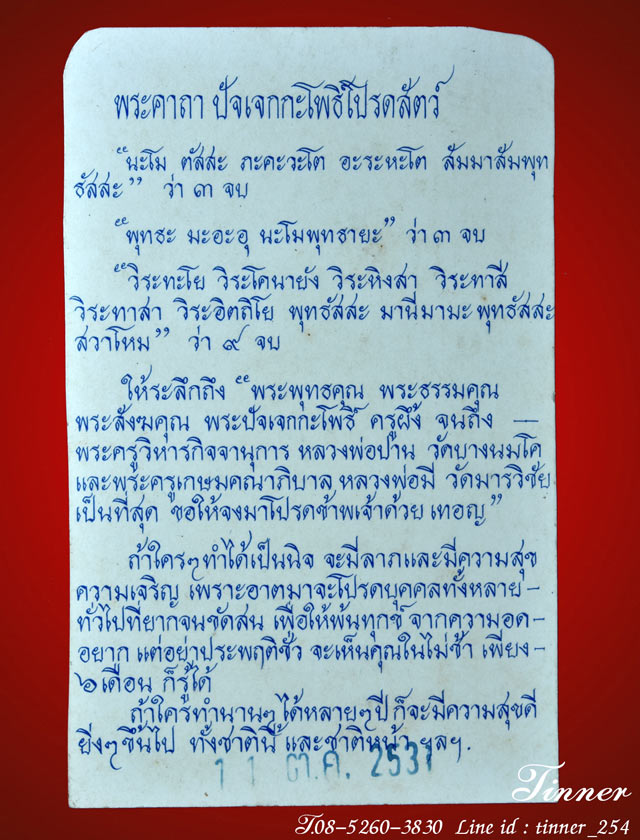 พระคาถา ปัจเจกกะโพธิ์โปรดสัตว์
"นะโม ตัสสะ ภะคะวะโต อะระหะโต สัมมาสัมพุท
ธัสสะ" ว่า ๓ จบ
"พุทธะ มะอะอุ นะโมพุทธายะ" ว่า ๓ จบ
"วิระทะโย วิระโคนายัง วิระหิงสา วิระทาสี
วิระทาสา วิระอิตถิโย พุทธัสสะ มานีมามะ พุทธัสสะ
สวาโหม" ว่า ๙ จบ
ให้ระลึกถึง "พระพุทธคุณ พระธรรมคุณ
พระสังฆคุณ พระปัจเจกกะโพธิ์ ครูผึ้ง จนถึง —
พระครูวิหารกิจจานุการ หลวงพ่อปาน วัดบางนมโค
และพระครูเกษมคณาภิบาล หลวงพ่อมี วัดมารวิชัย
เป็นที่สุด ขอให้จงมาโปรดข้าพเจ้าด้วย เทอญ"
ถ้าใครๆทำได้เป็นนิจ จะมีลาภและมีความสุข
ความเจริญ เพราะอาตมาจะโปรดบุคคลทั้งหลาย -
ทั่วไปที่ยากจนขัดสน เพื่อให้พ้นทุกข์ จากความอด -
อยาก แต่อย่าประพฤติชั่ว จะเห็นคุณในไม่ช้า เพียง -
๖ เดือน ก็รู้ได้
ถ้าใครทำนานๆ ได้หลายๆปี ก็จะมีความสุขดี
ยิ่งๆขึ้นไป ทั้งชาตินี้ และชาติหน้า ฯลฯ.
11 ต.ค. 2531
Tinner
T.08-5260-3830 Line id : tinner_254